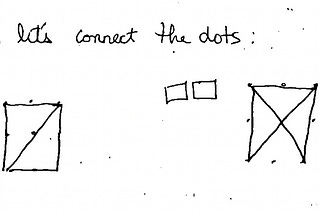 let's connect the dots :